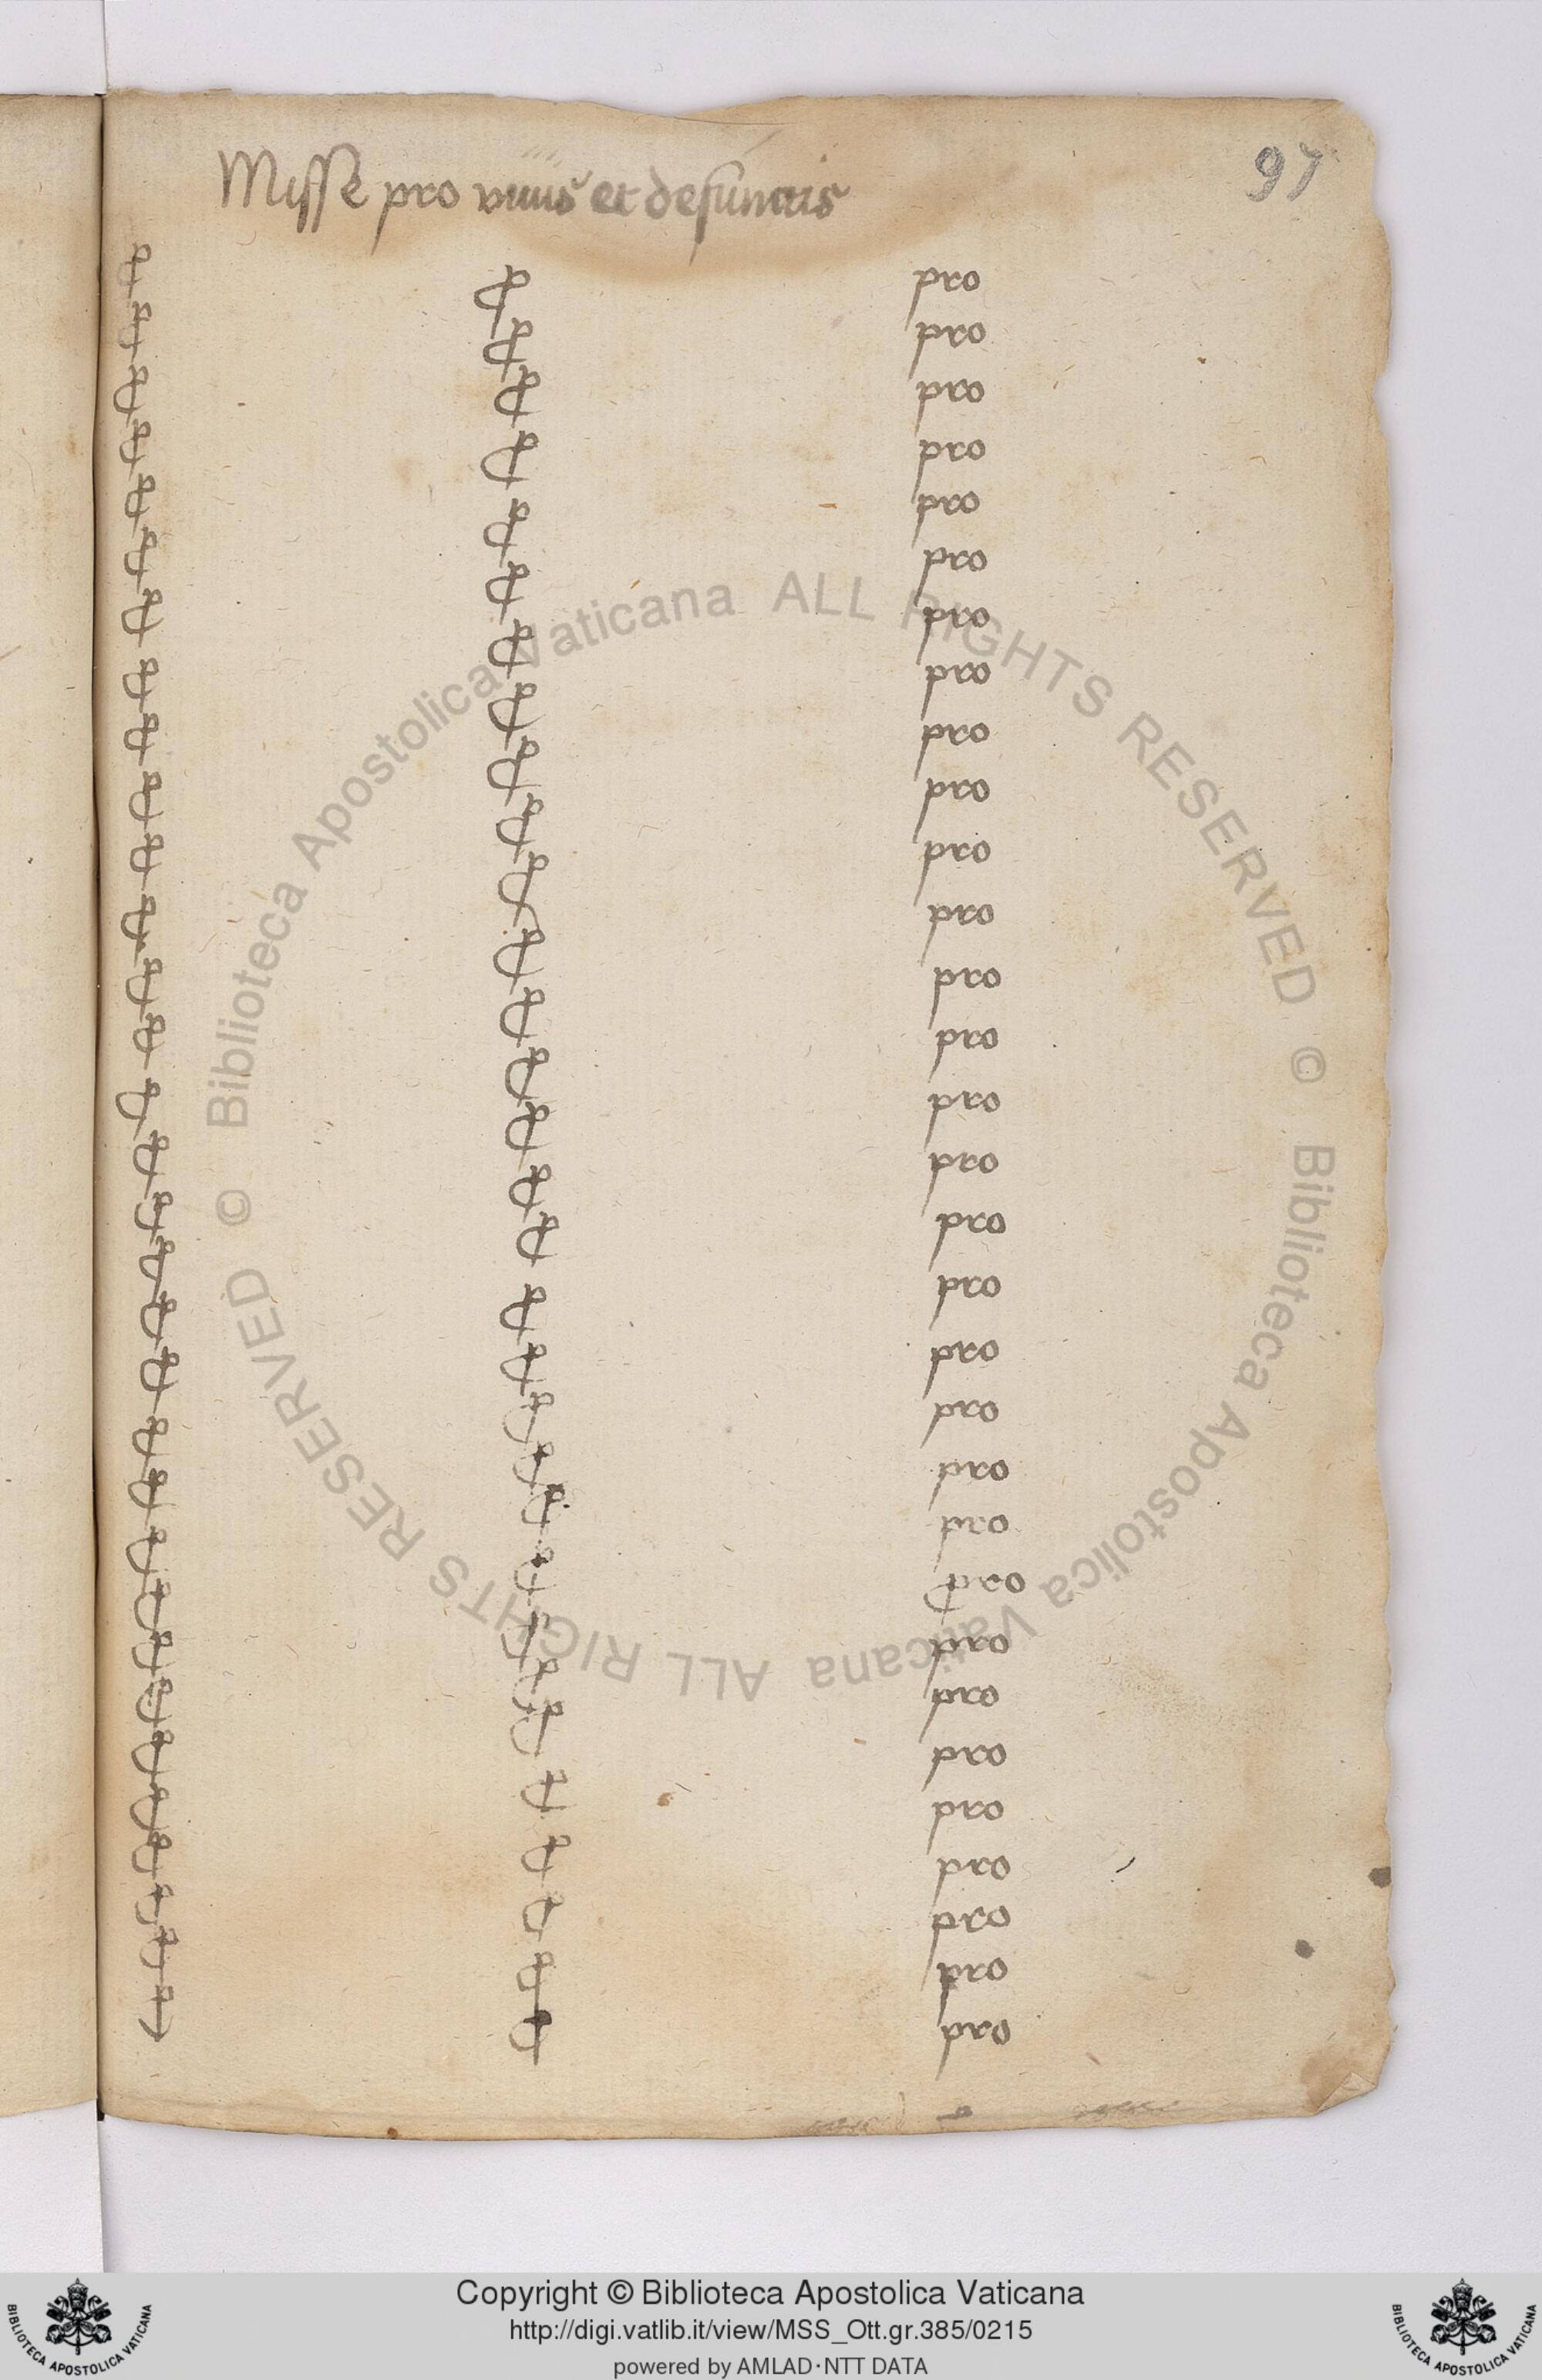 97
Misse pro viuis et defunctis
ꝓ ꝓ pro
ꝓ ꝓ pro
ꝓ ꝓ pro
ꝓ ꝓ pro
ꝓ ꝓ pro
ꝓ ꝓ pro
ꝓ ꝓ pro
ꝓ ꝓ pro
ꝓ ꝓ pro
ꝓ ꝓ pro
ꝓ ꝓ pro
ꝓ ꝓ pro
ꝓ ꝓ pro
ꝓ ꝓ pro
ꝓ ꝓ pro
ꝓ ꝓ pro
ꝓ ꝓ pro
ꝓ ꝓ pro
ꝓ ꝓ pro
ꝓ ꝓ pro
ꝓ ꝓ pro
ꝓ ꝓ pro
ꝓ ꝓ pro
ꝓ ꝓ pro
ꝓ ꝓ pro
ꝓ ꝓ pro
ꝓ ꝓ pro
ꝓ ꝓ pro
ꝓ ꝓ pro
ꝓ ꝓ pro
ꝓ ꝓ pro
© Biblioteca Apostolica Vaticana ALL RIGHTS RESERVED
© Biblioteca Apostolica Vaticana ALL RIGHTS RESERVED
Copyright © Biblioteca Apostolica Vaticana
http://digi.vatlib.it/view/MSS_Ott.gr.385/0215
powered by AMLAD·NTT DATA
BIBLIOTECA APOSTOLICA VATICANA
BIBLIOTECA APOSTOLICA VATICANA